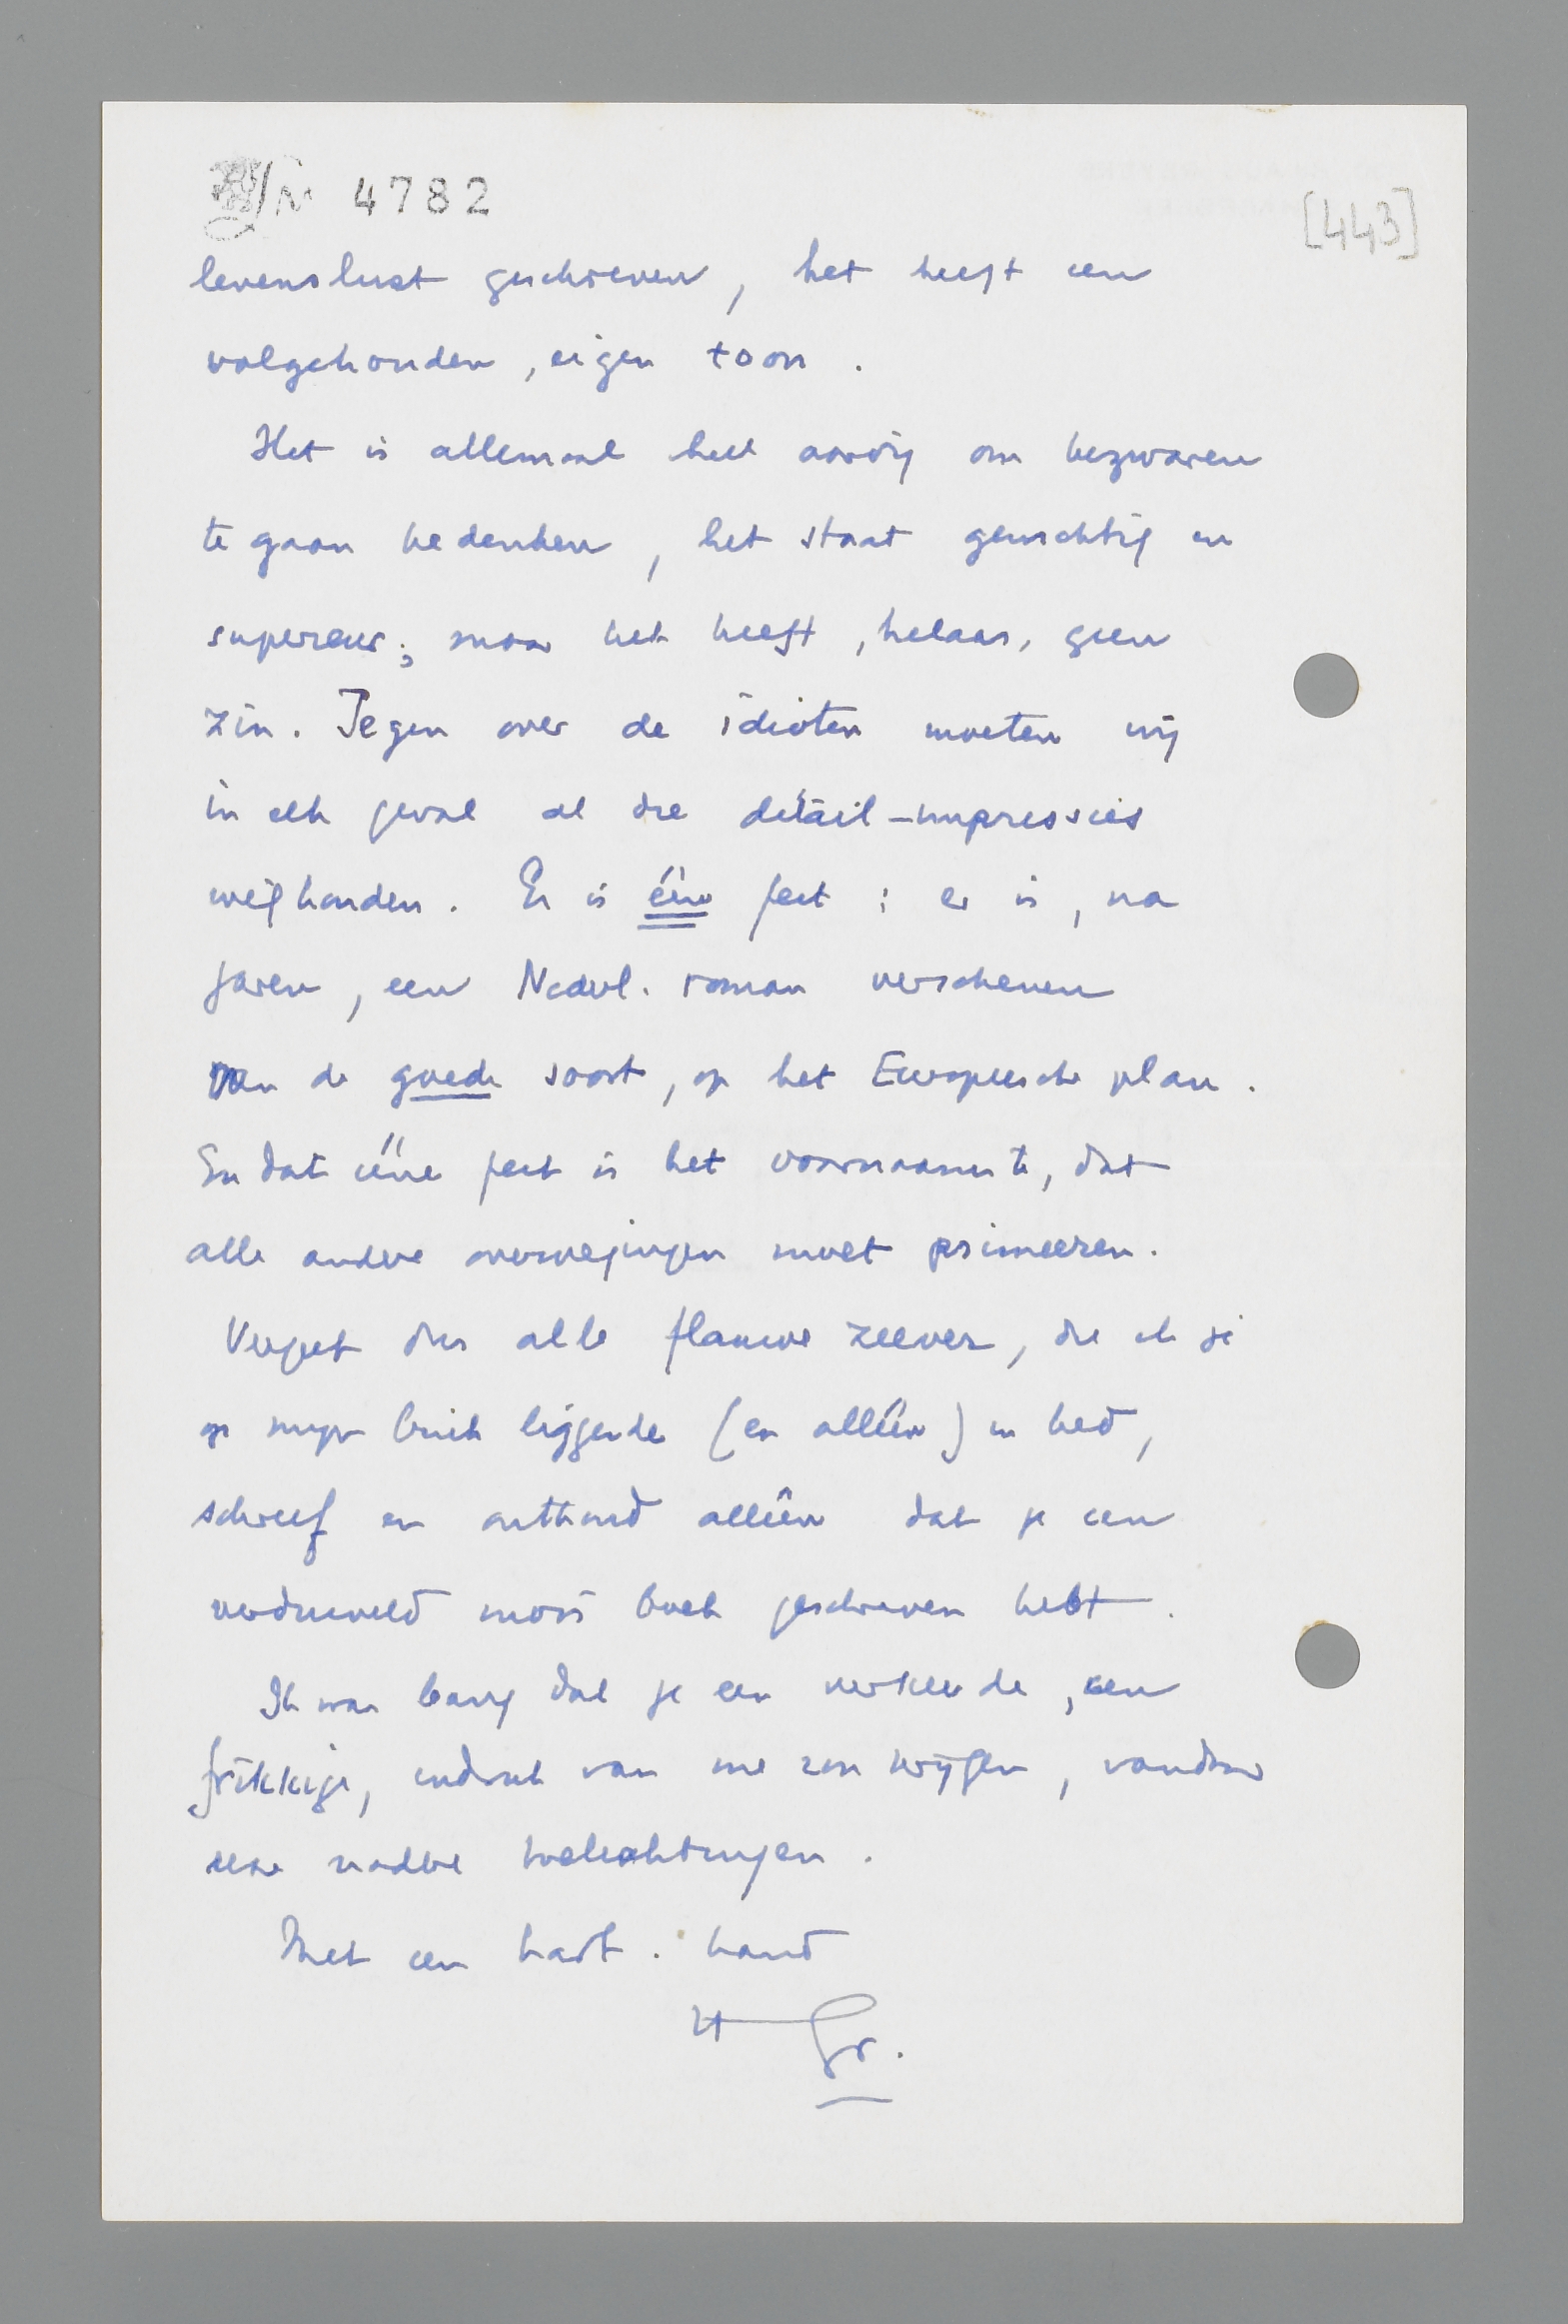 4782
[443]
levenslust geschreven, het heeft een
volgehouden, eigen toon.
Het is allemaal heel aardig om bezwaren
te gaan bedenken, het staat gewichtig en
superieur; maar het heeft, helaas, geen
zin. Tegen over de idioten moeten wij
in elk geval al die détail-impressies
weghouden. Er is één feit: er is, na
jaren, een Nederl. roman verschenen
van de goede soort, op het Europeesche plan.
En dat ééne feit is het voornaamste, dat
alle andere overwegingen moet primeeren.
Vergeet dus alle flauwe zeever, die ik je
op mijn buik liggende (en alléén) in bed,
schreef en onthoud alléén dat je een
verduiveld mooi boek geschreven hebt.
Ik was bang dat je een verkeerde, een
frikkige, indruk van me zou krijgen, vandaar
deze nadere toelichtingen.
Met een hart. hand
Gr.